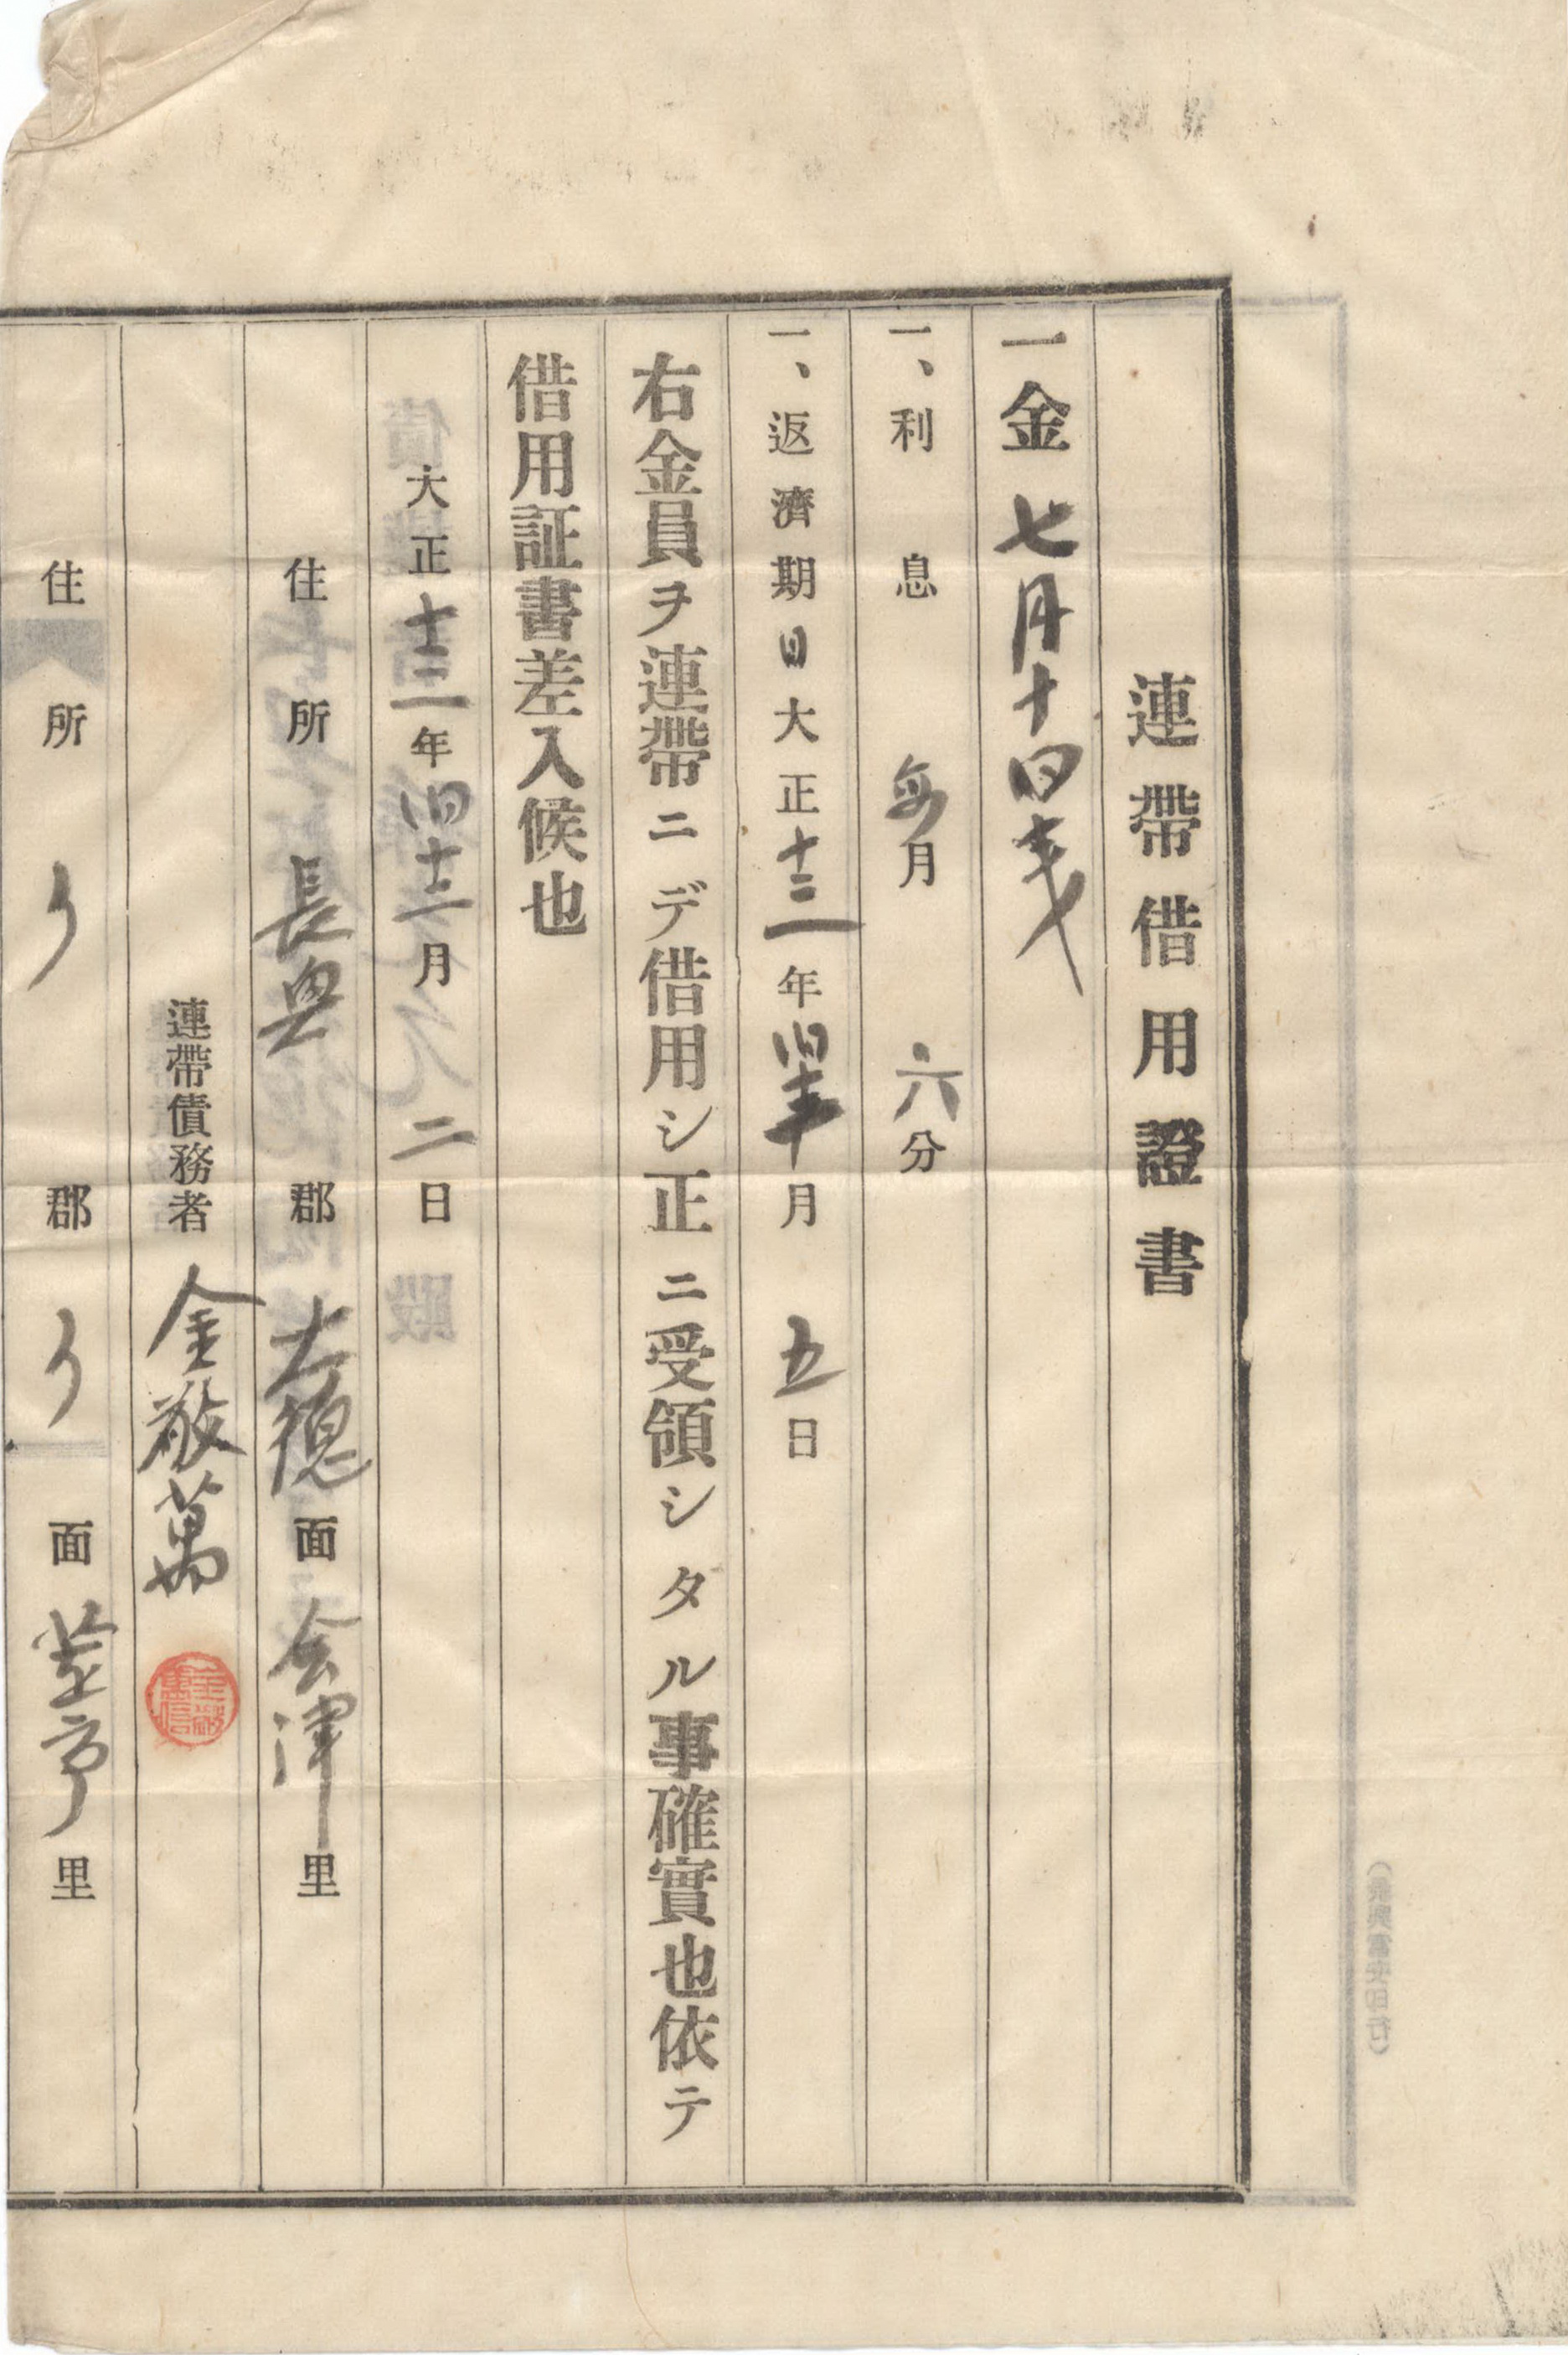 連帶借用證書
一金七円十四戔
一、利息 每月 六分
一、返濟期日大正十三年四月五日
右金員ヲ連帶ニデ借用シ正ニ受領シタル事確實也依テ
借用証書差入候也
大正十二年十二月二日
住所 長興郡 大德面 会津里
連帶債務者 金敬萬
住所 〃郡 〃面 里